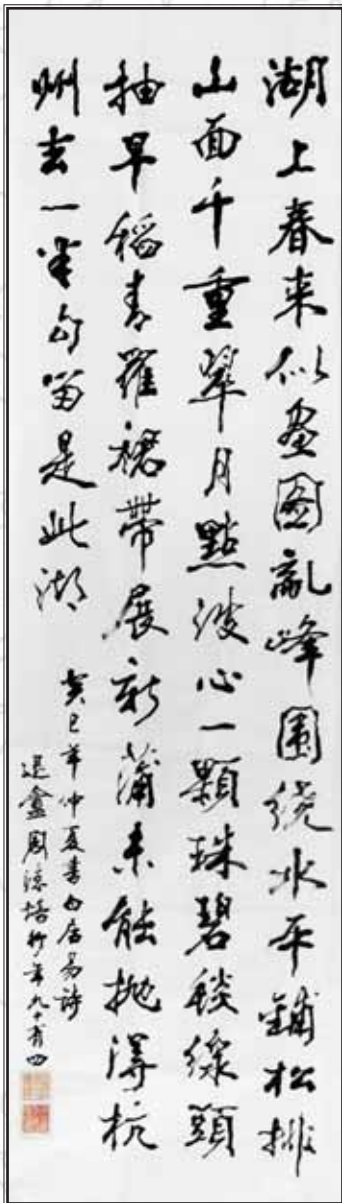 湖上春来似畫图亂峰围绕水平鋪松排
山面千重翠月點波心一顆珠碧毯線頭
抽早稻青羅裙帶展新蒲未能抛得杭
州去一半勾留是此湖
癸巳年仲夏書白居易詩
退盦周德培行年九十有四